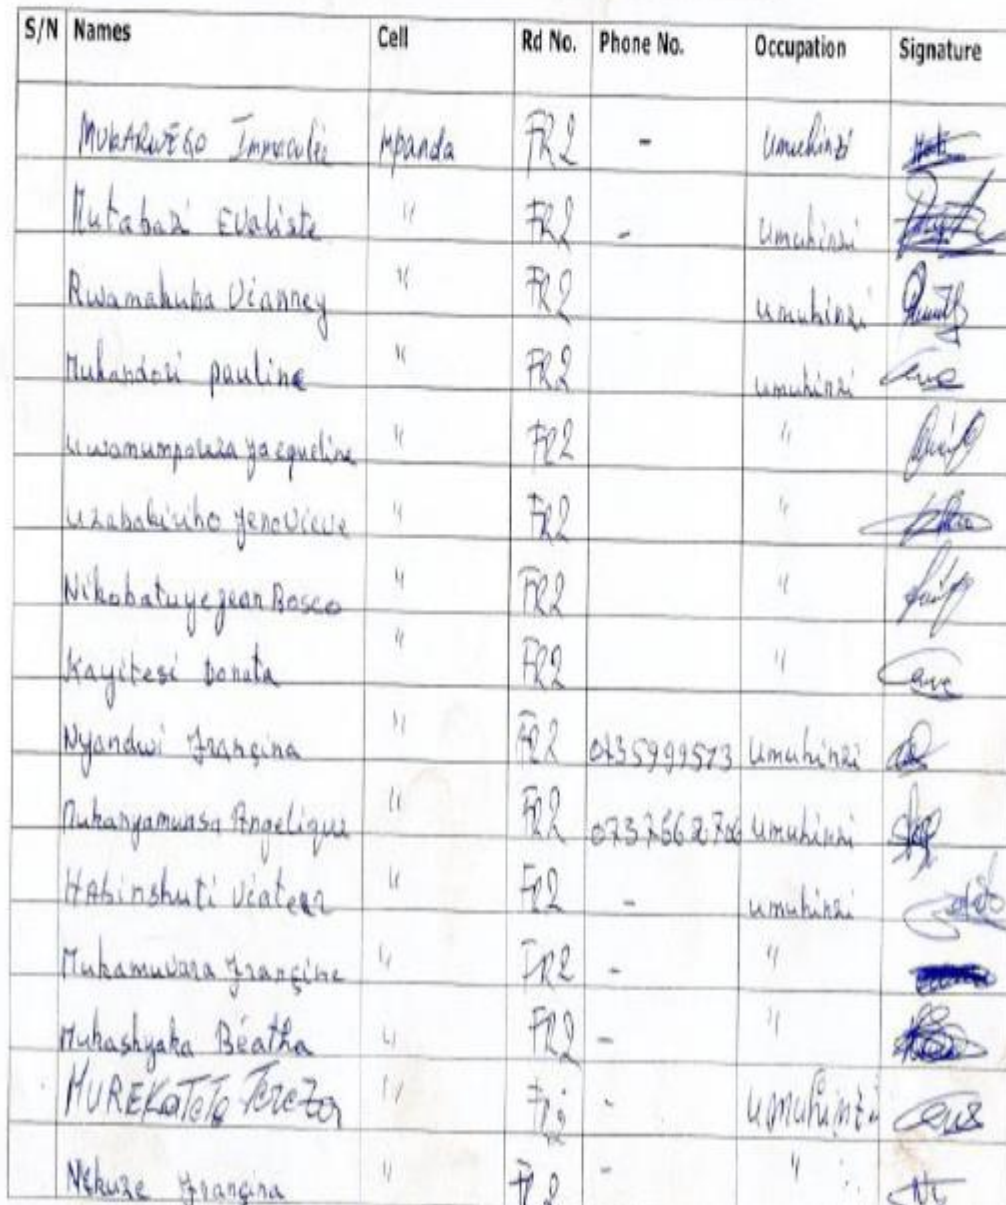 S/N Names Cell Rd No. Phone No. Occupation Signature
MUKARWEGO Immaculée Mpanda FR2 - Umuhinzi
Mutabazi Evaliste " FR2 - Umuhinzi
Rwamakuba Vianney " FR2 umuhinzi
Mukandori pauline " FR2 umuhinzi
Uwamumpouza Jacqueline " FR2 "
Uzabakiriho Jenovieve " FR2 "
Nikobatuye Jean Bosco " FR2 "
Kayitesi Donata " FR2 "
Nyandwi Françina " FR2 0735999573 Umuhinzi
Mukanyamwasa Angelique " FR2 Umuhinzi
HAbinshuti Viateur " FR2 - umuhinzi
Mukamuvara Françine " FR2 - "
Mukashyaka Béatha " FR2 - "
MUREKATETE Tereza " FR2 - umuhinzi
Nekuze Françina " FR2 - "